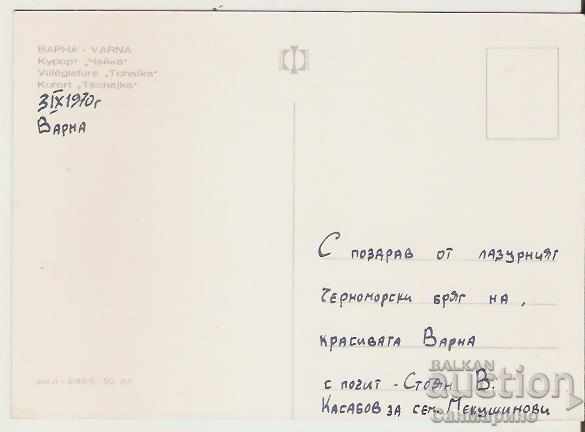 ВАРНА - VARNA
Курорт „Чайка“
Villégiature „Tchaïka“
Kurort „Tschajka“
3 IX 1970 г
Варна
С поздрав от лазурният
Черноморски бряг на ,
красивата Варна
с почит - Стоян В.
Касабов за сем. Мекушинови
BALKAN
auction
Санмарино